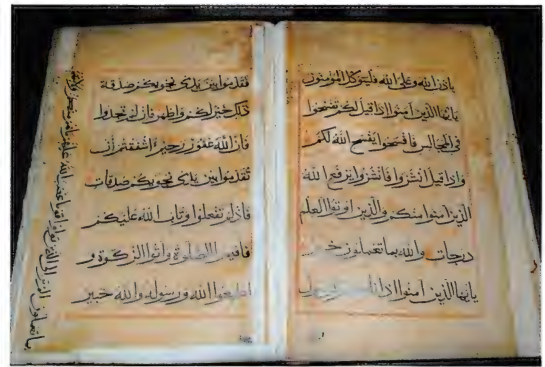 باذن الله وعلى الله فليتوكل المؤمنون
يايها الذين امنوا اذا قيل لكم تفسحوا
في المجالس فافسحوا يفسح الله لكم
واذا قيل انشزوا فانشزوا يرفع الله
الذين امنوا منكم والذين اوتوا العلم
درجات والله بما تعملون خبير
يايها الذين امنوا اذا الرسول
فقدموا بين يدى نجويكم صدقة
ذلك خير لكم واطهر فان لم تجدوا
فان الله غفور رحيم ءاشفقتم ان
تقدموا بين يدى نجويكم صدقات
فاذ لم تفعلوا وتاب الله عليكم
فاقيموا الصلوة واتوا الزكوة و
اطيعوا الله ورسوله والله خبير
بما تعملون الم تر الى الذين تولوا قوما غضب الله عليهم